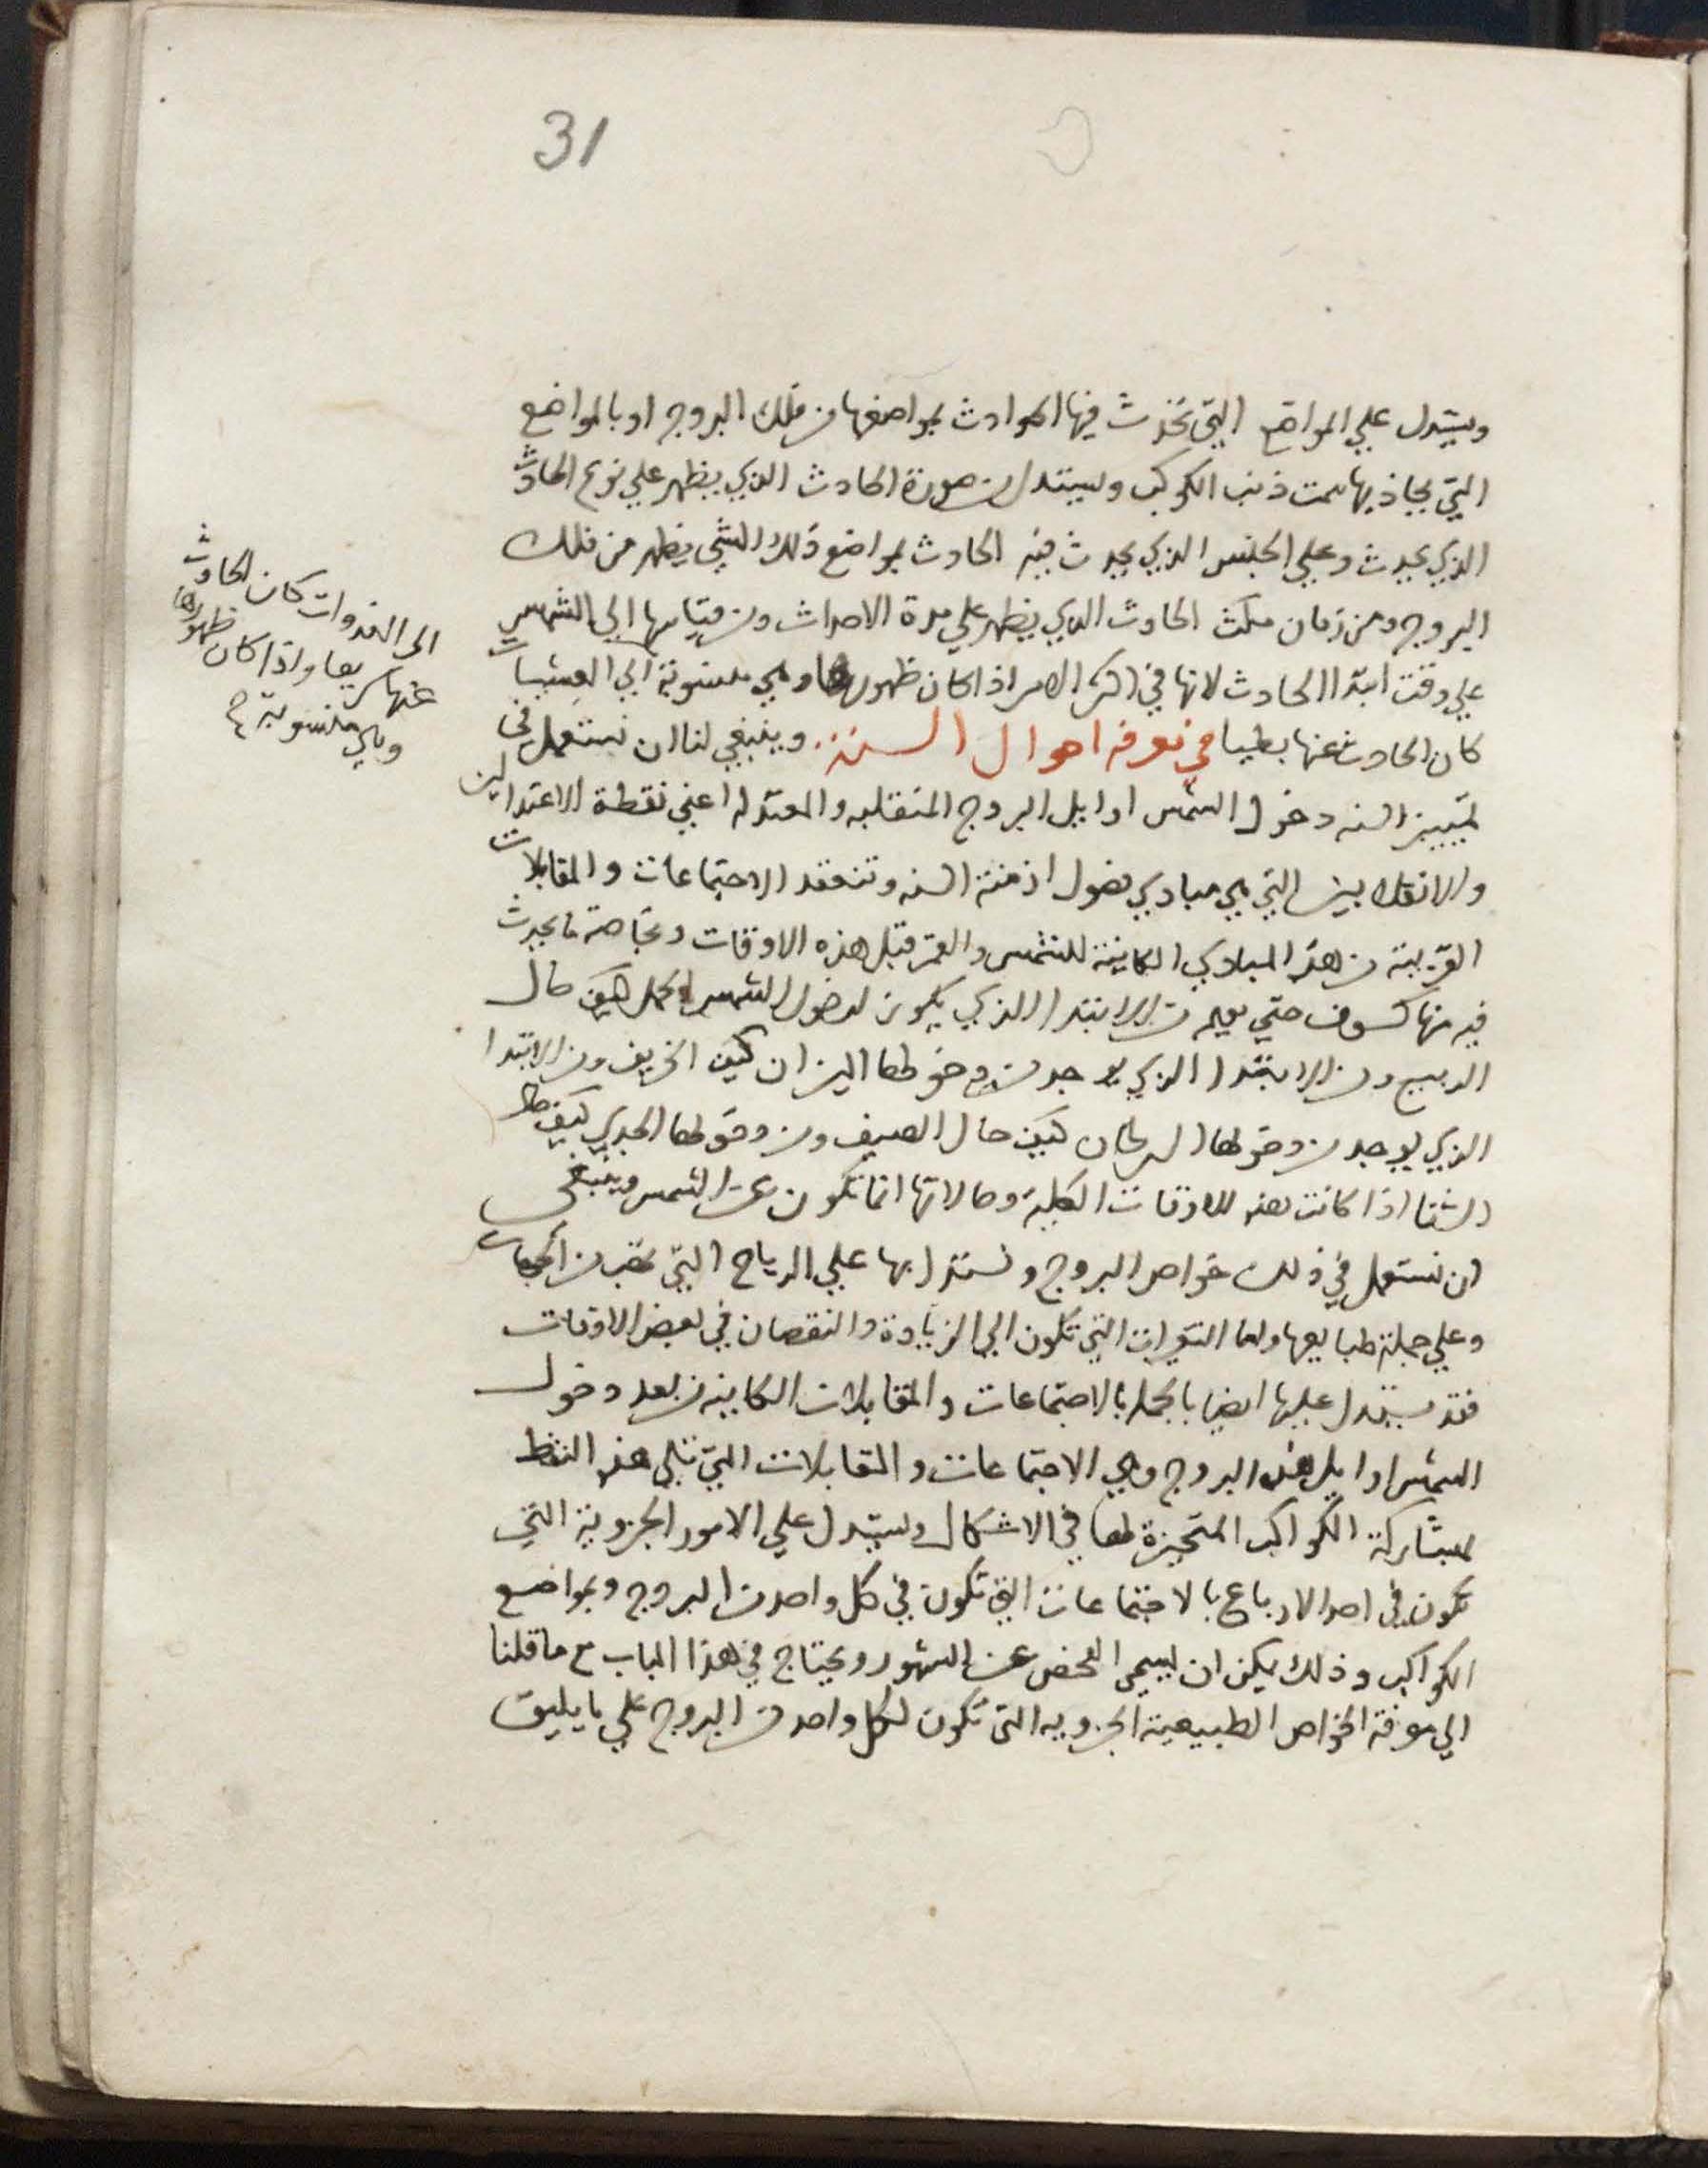 31
ويستدل علي المواضع التي تحدث فيها الحوادث بمواضعها من فلك البروج او بالمواضع
التي يحاذيها سمت ذنب الكوكب ويستدل من صورة الحادث الذي يظهر علي نوع الحادث
الذي يحدث وعلي الجنس الذي يحدث فيه الحادث بمواضع ذلك الشي يظهر من فلك
البروج ومن زمان مكث الحادث الذي يظهر علي مدة الاحداث ومن قياسها الي الشمس
علي وقت ابتدا الحادث لانها في اكثر الامر اذا كان ظهورها وهي منسوبة الي العشيات
كان الحادث عنها بطيا في معرفة احوال السنة وينبغي لنا ان نستعمل في
تمييز السنه دخول الشمس اوايل البروج المنقلبه والمعتدله اعني نقطة الاعتدالين
والانقلابين التي هي مبادي فصول ازمنة السنه وتتفقد الاجتماعات والمقابلات
القريبة من هذه المبادي الكاينة للشمس والقمر قبل هذه الاوقات وبخاصة ما يحدث
فيه منها كسوف حتي يعلم من الابتدا الذي يكون لدخول الشمس الحمل كيف حال
الربيع ومن الابتدا الذي يوجد من دخولها الميزان كيف الخريف ومن الابتدا
الذي يوجد من دخولها السرطان كيف حال الصيف ومن دخولها الجدي كيف حال
الشتا اذا كانت هذه الاوقات الكلية وحالاتها انما تكون عن الشمس وينبغي
ان نستعمل في ذلك خواص البروج ونستدل بها علي الرياح التي تهب من الجهات
وعلي جملة طبايعها واما التغيرات التي تكون الي الزيادة والنقصان في بعض الاوقات
فقد يستدل عليها ايضا بالجمله بالاجتماعات والمقابلات الكاينه من بعد دخول
الشمس اوايل هذه البروج وهي الاجتماعات والمقابلات التي تلي هذه النقط
لمشاركة الكواكب المتحيزة لها في الاشكال ويستدل علي الامور الجزوية التي
تكون في احد الارباع بالاجتماعات التي تكون في كل واحد من البروج وبمواضع
الكواكب وذلك يمكن ان يسمي الفحص عن الشهور ويحتاج في هذا الباب مع ما قلنا
الي معرفة الخواص الطبيعية الجزويه التي تكون لكل واحد من البروج علي ما يليق
الى الغدوات كان الحادث
عنها سريعا واذا كان ظهورها
وهي منسوبة